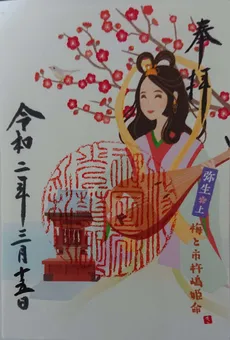 奉拝
弥生 上
梅と市杵嶋姫命
令和二年三月十五日